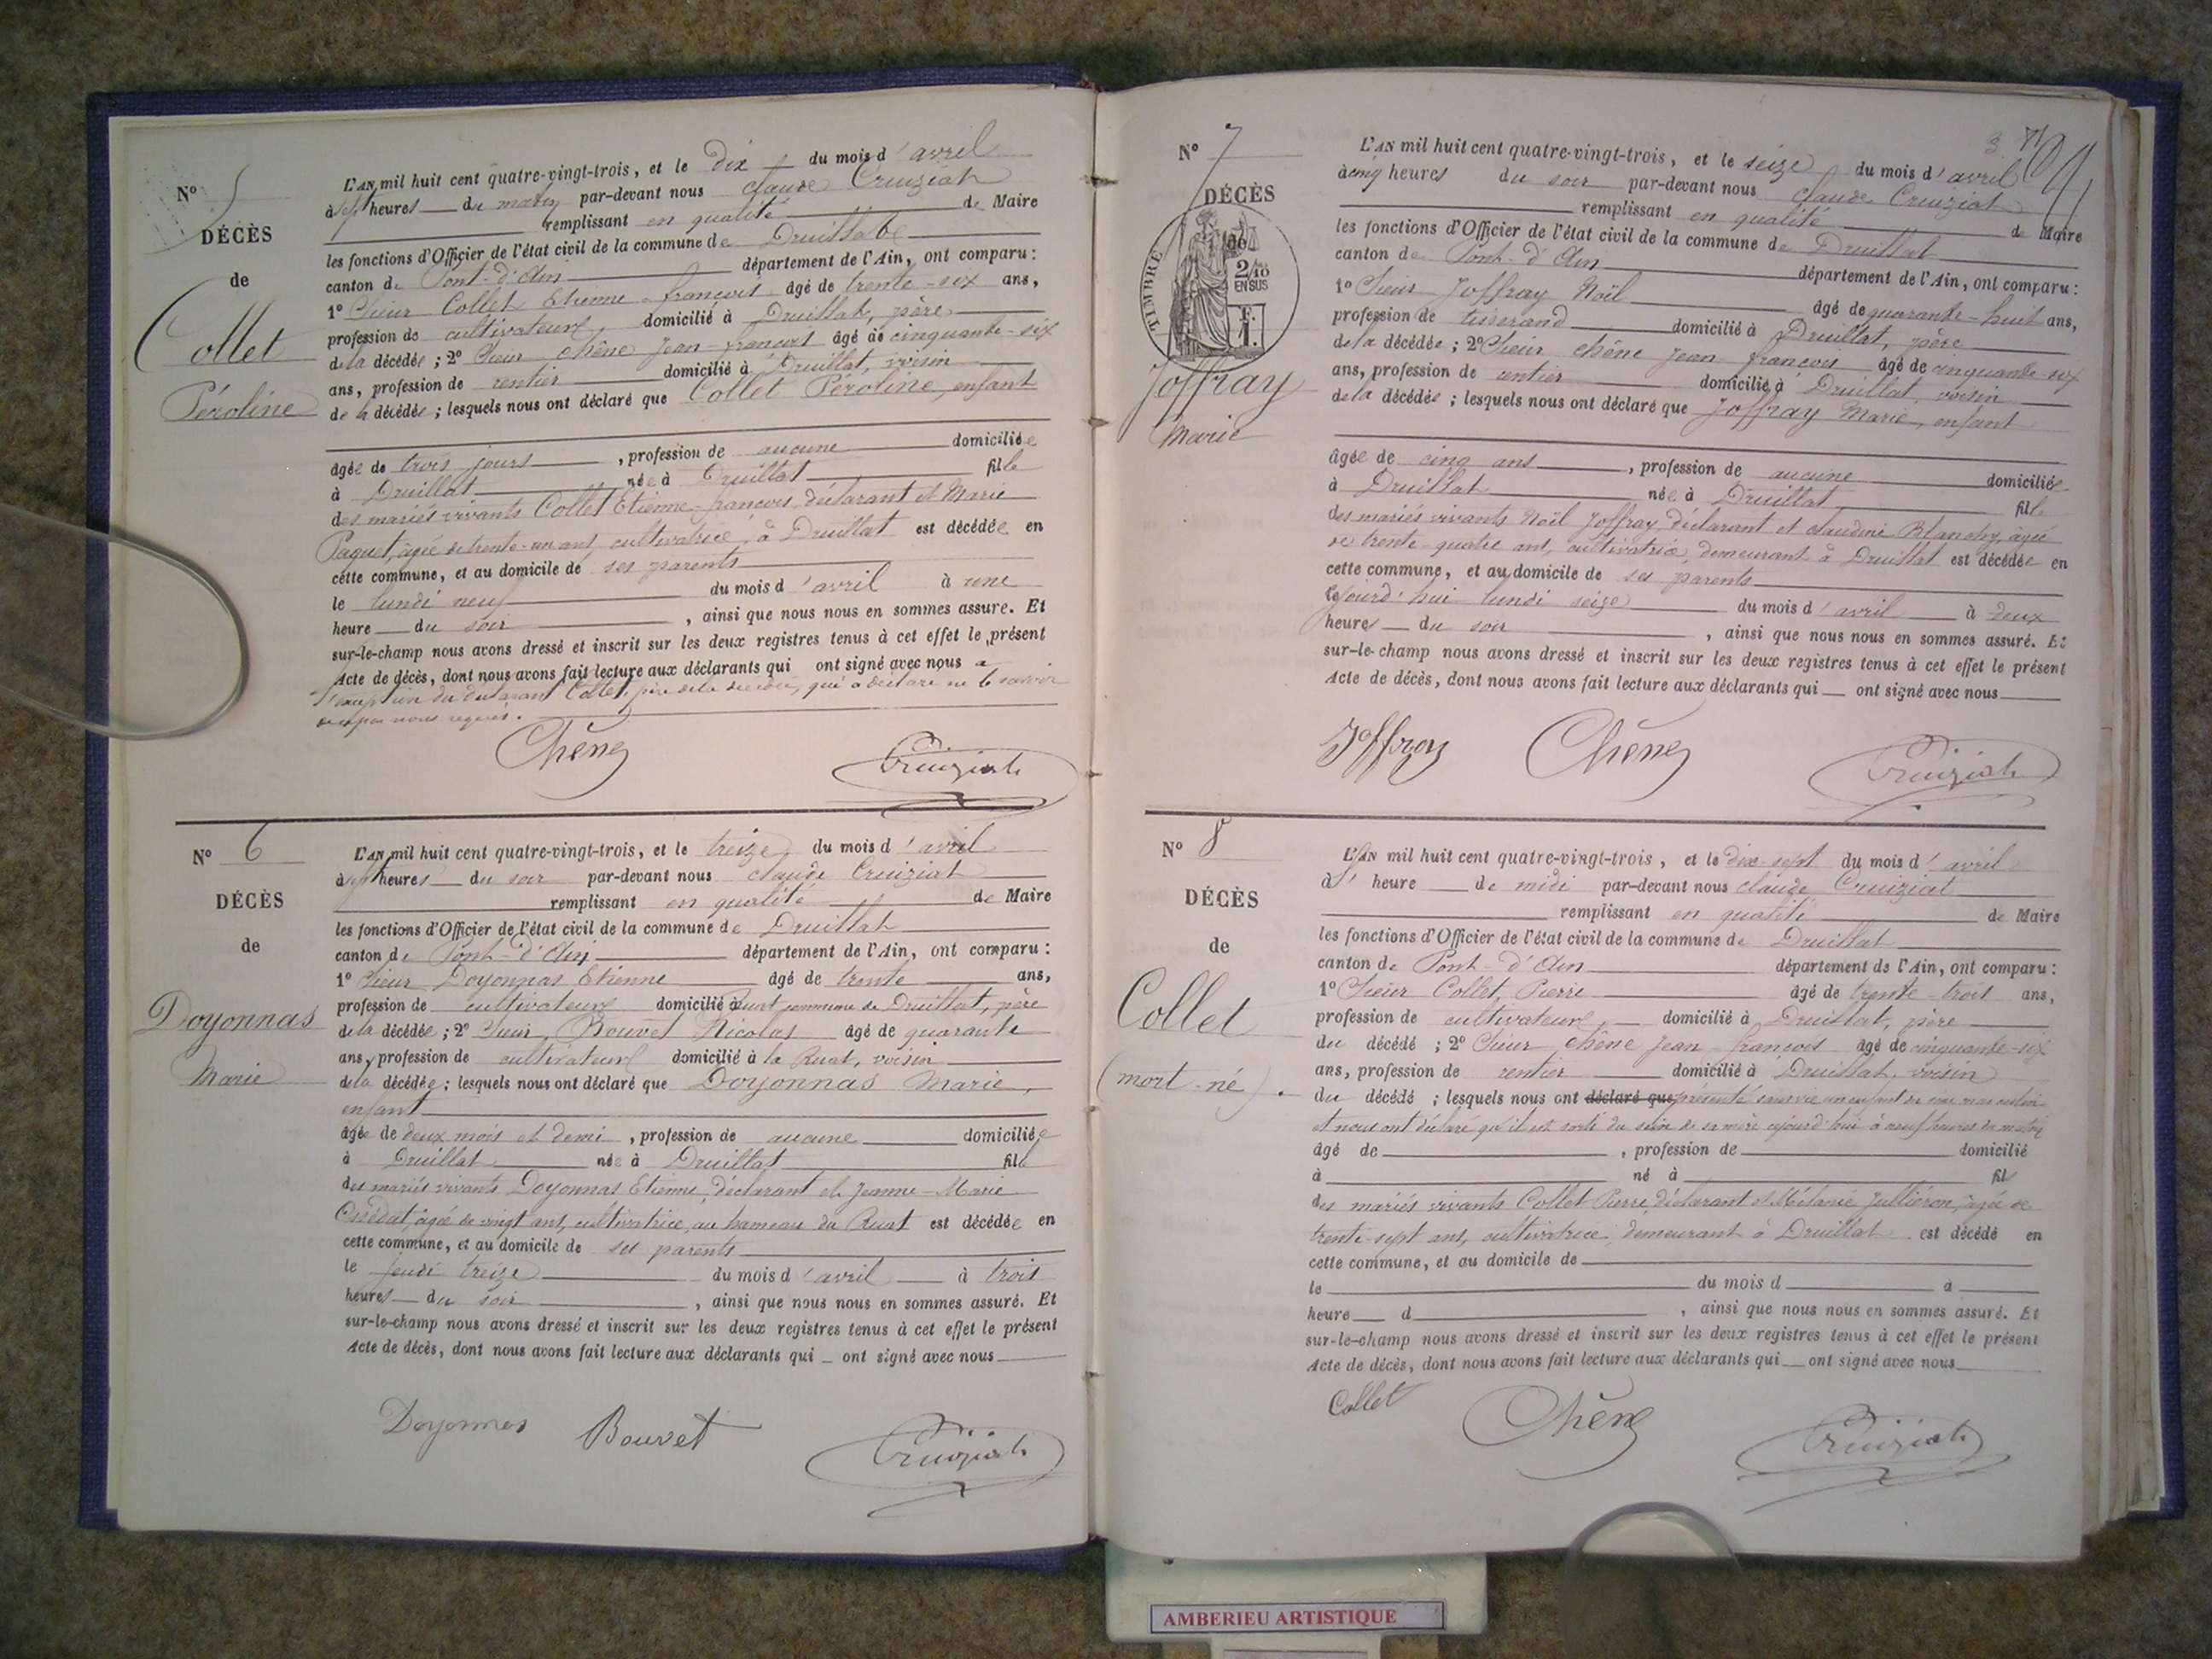 N° 5
DÉCÈS
de
Collet
Péroline
L'AN mil huit cent quatre-vingt-trois, et le dix du mois d'avril
à sept heures du matin par-devant nous Claude Cruiziat
remplissant en qualité de Maire
les fonctions d'Officier de l'état civil de la commune de Druillat
canton de Pont-d'Ain département de l'Ain, ont comparu :
1° Sieur Collet Etienne-françois âgé de trente-six ans,
profession de cultivateur, domicilié à Druillat, père
de la décédée ; 2° Sieur Chêne Jean-françois âgé de cinquante-six
ans, profession de rentier domicilié à Druillat, voisin
de la décédée ; lesquels nous ont déclaré que Collet Péroline, enfant
âgée de trois jours, profession de aucune domiciliée
à Druillat née à Druillat fille
des mariés vivants Collet Etienne-françois, déclarant et Marie
Paquet, âgée de trente-un ans, cultivatrice, à Druillat est décédée en
cette commune, et au domicile de ses parents
le lundi neuf du mois d'avril à une
heure du soir, ainsi que nous nous en sommes assuré. Et
sur-le-champ nous avons dressé et inscrit sur les deux registres tenus à cet effet le présent
Acte de décès, dont nous avons fait lecture aux déclarants qui ont signé avec nous à
l'exception du déclarant Collet, père de la décédée, qui a déclaré ne le savoir
de ce par nous requis.
Chêne
Cruiziat
N° 6
DÉCÈS
de
Doyonnas
Marie
L'AN mil huit cent quatre-vingt-trois, et le treize du mois d'avril
à sept heures du soir par-devant nous Claude Cruiziat
remplissant en qualité de Maire
les fonctions d'Officier de l'état civil de la commune de Druillat
canton de Pont-d'Ain département de l'Ain, ont comparu :
1° Sieur Doyonnas Etienne âgé de trente ans,
profession de cultivateur domicilié à Ruat commune de Druillat, père
de la décédée ; 2° Sieur Bouvet Nicolas âgé de quarante
ans, profession de cultivateur domicilié à la Ruat, voisin
de la décédée ; lesquels nous ont déclaré que Doyonnas Marie,
enfant
âgée de deux mois et demi, profession de aucune domiciliée
à Druillat née à Druillat fille
des mariés vivants Doyonnas Etienne, déclarant et Jeanne-Marie
âgée de vingt ans, cultivatrice, au hameau du Ruat est décédée en
cette commune, et au domicile de ses parents
le jeudi treize du mois d'avril à trois
heures du soir, ainsi que nous nous en sommes assuré. Et
sur-le-champ nous avons dressé et inscrit sur les deux registres tenus à cet effet le présent
Acte de décès, dont nous avons fait lecture aux déclarants qui ont signé avec nous
Doyonnas
Bouvet
Cruiziat
N° 7
DÉCÈS
de
TIMBRE
2/10
EN SUS
F.
1.
Joffray
Marie
L'AN mil huit cent quatre-vingt-trois, et le seize du mois d'avril
à cinq heures du soir par-devant nous Claude Cruiziat
remplissant en qualité de Maire
les fonctions d'Officier de l'état civil de la commune de Druillat
canton de Pont-d'Ain département de l'Ain, ont comparu :
1° Sieur Joffray Noël âgé de quarante-huit ans,
profession de tisserand domicilié à Druillat, père
de la décédée ; 2° Sieur Chêne Jean françois âgé de cinquante-six
ans, profession de rentier domicilié à Druillat, voisin
de la décédée ; lesquels nous ont déclaré que Joffray Marie, enfant
âgée de cinq ans, profession de aucune domiciliée
à Druillat née à Druillat fille
des mariés vivants Noël Joffray, déclarant et Claudine Blanchy, âgée
de trente-quatre ans, cultivatrice, demeurant à Druillat est décédée en
cette commune, et au domicile de ses parents
cejourd'hui lundi seize du mois d'avril à deux
heures du soir, ainsi que nous nous en sommes assuré. Et
sur-le-champ nous avons dressé et inscrit sur les deux registres tenus à cet effet le présent
Acte de décès, dont nous avons fait lecture aux déclarants qui ont signé avec nous
Joffray
Chêne
Cruiziat
N° 8
DÉCÈS
de
Collet
(mort-né).
L'AN mil huit cent quatre-vingt-trois, et le dix-sept du mois d'avril
à l'heure de midi par-devant nous Claude Cruiziat
remplissant en qualité de Maire
les fonctions d'Officier de l'état civil de la commune de Druillat
canton de Pont-d'Ain département de l'Ain, ont comparu :
1° Sieur Collet, Pierre âgé de trente-trois ans,
profession de cultivateur, domicilié à Druillat, père
du décédé ; 2° Sieur Chêne Jean-françois âgé de cinquante-six
ans, profession de rentier domicilié à Druillat, voisin
du décédé ; lesquels nous ont déclaré que présenté sans vie un enfant de sexe masculin
et nous ont déclaré qu'il est sorti du sein de sa mère aujourd'hui à neuf heures du matin
âgé de , profession de domicilié
à né à fil
des mariés vivants Collet Pierre, déclarant et Mélanie Jullieron, âgée de
trente-sept ans, cultivatrice, demeurant à Druillat est décédé en
cette commune, et au domicile de
le du mois d à
heure d , ainsi que nous nous en sommes assuré. Et
sur-le-champ nous avons dressé et inscrit sur les deux registres tenus à cet effet le présent
Acte de décès, dont nous avons fait lecture aux déclarants qui ont signé avec nous
Collet
Chêne
Cruiziat
AMBERIEU ARTISTIQUE